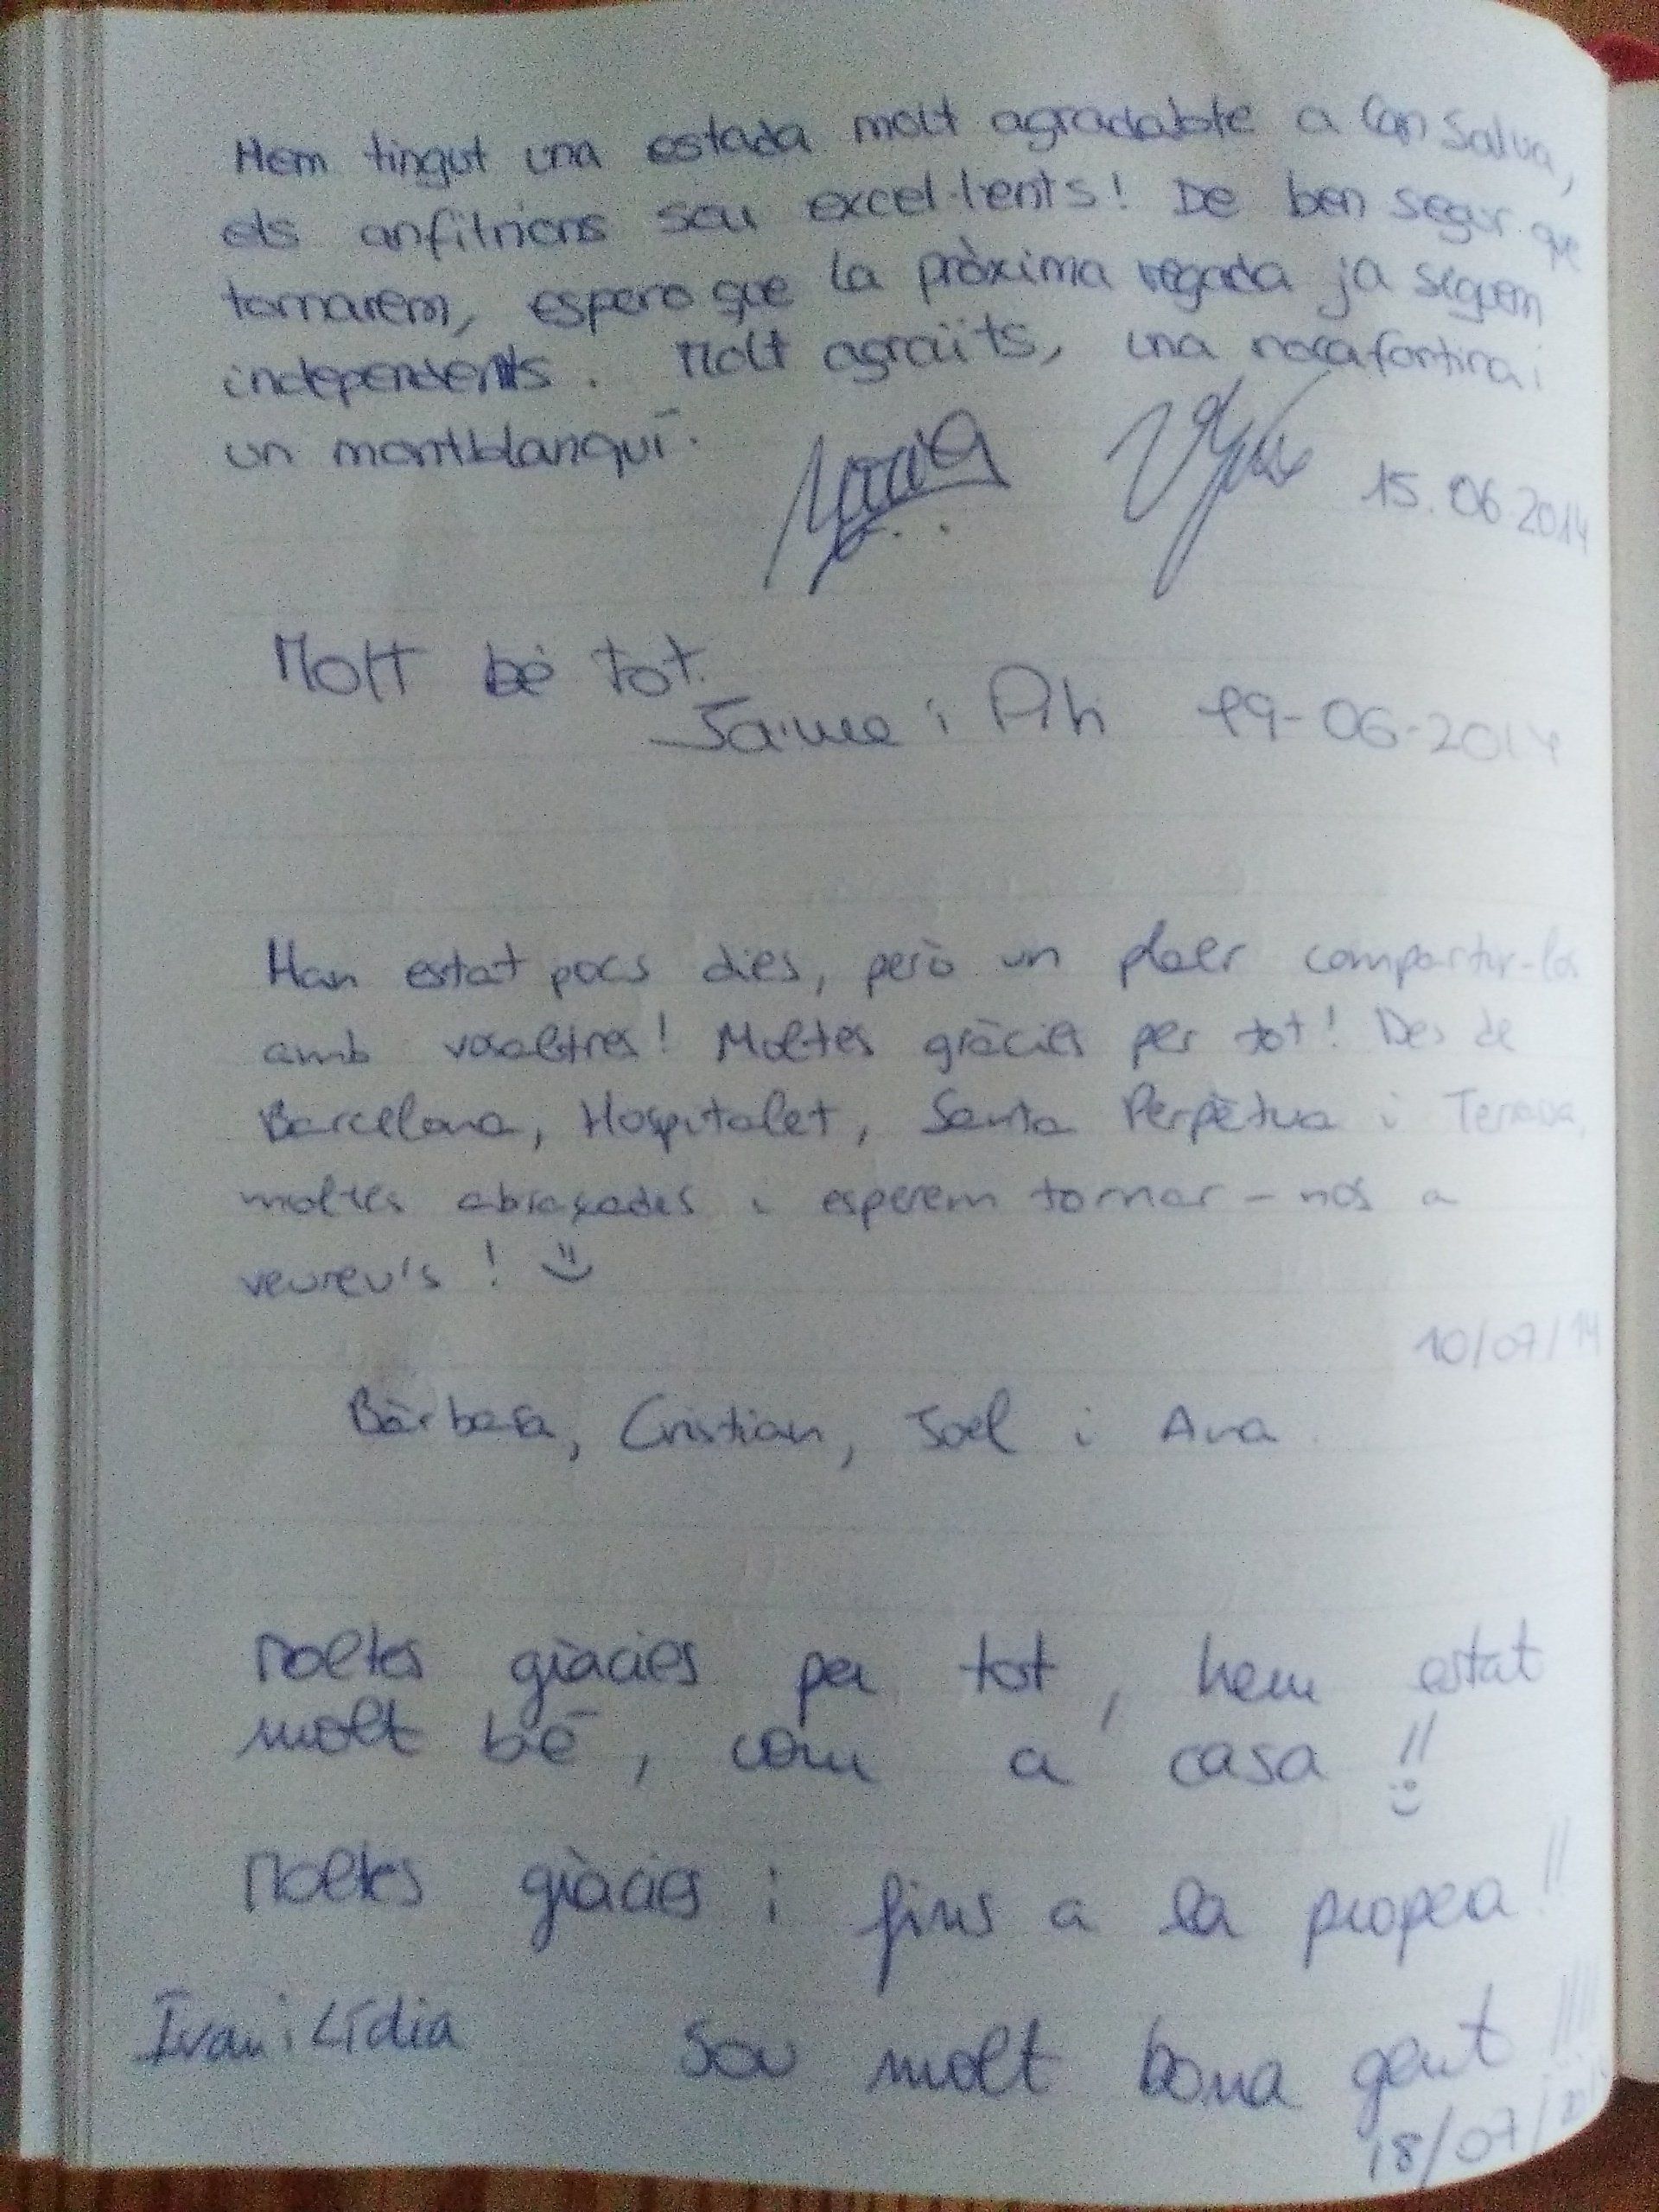 Hem tingut una estada molt agradable a Can Salva,
els anfitrions sou excel·lents! De ben segur que
tornarem, espero que la pròxima vegada ja siguem
independents. Molt agraïts, una rocafortina i
un montblanquí.
15.06.2014
Molt bé tot.
Jaume i Pili 19-06-2014
Han estat pocs dies, però un plaer compartir-los
amb vosaltres! Moltes gràcies per tot! Des de
Barcelona, Hospitalet, Santa Perpètua i Terrassa,
moltes abraçades i esperem tornar-nos a
veureu's ! :)
10/07/14
Bàrbara, Cristian, Joel i Anna.
Moltes gràcies per tot, hem estat
molt bé, com a casa!!
:)
Moltes gràcies i fins a la propera!!
Ivan i Lídia Sou molt bona gent!!!!
18/07/